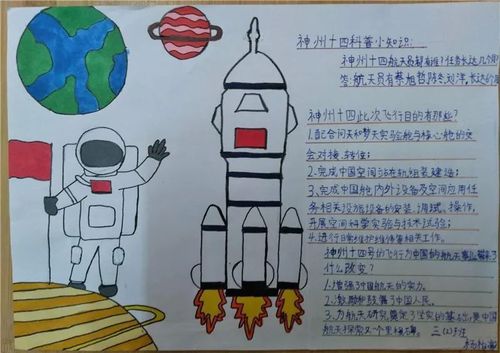 神州十四科普小知识：
神州十四航天员都有谁？任务长达几个月
答：航天员有蔡旭哲陈冬刘洋，长达6个月
神州十四此次飞行目的有那些？
1.配合问天和梦天实验舱与核心舱的交
会对接、转位；
2.完成中国空间站在轨组装建造；
3.完成中国舱内外设备及空间应用任
务相关设施设备的安装、调试、操作，
开展空间科学实验与技术试验；
4.进行日常维护维修等相关工作。
神州十四号的飞行为中国的航天事业带来了
什么改变？
1.增强了中国航天的实力。
2.激励和鼓舞了中国人民。
3.为航天研究奠定了坚实的基础，是中国
航天探索又一个里程碑。 三(2)班